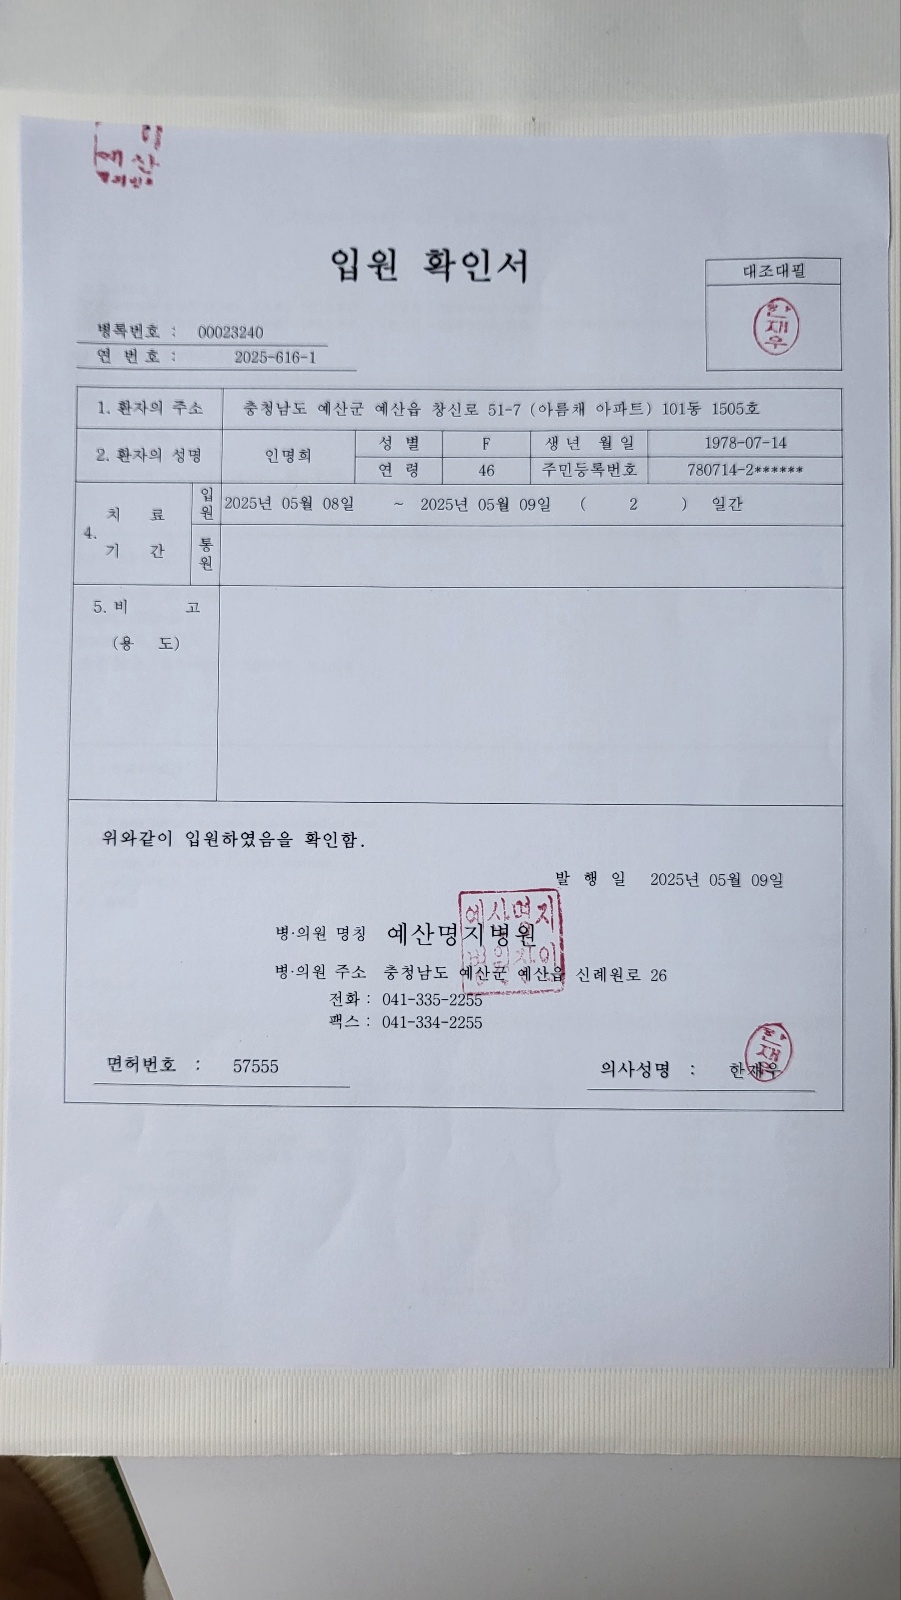 예산
입원 확인서
대조대필
한재우
병록번호 : 00023240
연 번 호 : 2025-616-1
1. 환자의 주소 충청남도 예산군 예산읍 창신로 51-7 (아름채 아파트) 101동 1505호
2. 환자의 성명 인명희 성 별 F 생년 월일 1978-07-14
연 령 46 주민등록번호 780714-2******
4. 치 료 기 간 입원 2025년 05월 08일 ~ 2025년 05월 09일 ( 2 ) 일간
통원
5. 비 고
(용 도)
위와같이 입원하였음을 확인함.
발 행 일 2025년 05월 09일
병·의원 명칭 예산명지병원
예산명지병원장인
병·의원 주소 충청남도 예산군 예산읍 신례원로 26
전화 : 041-335-2255
팩스 : 041-334-2255
면허번호 : 57555
의사성명 : 한재우
한재우